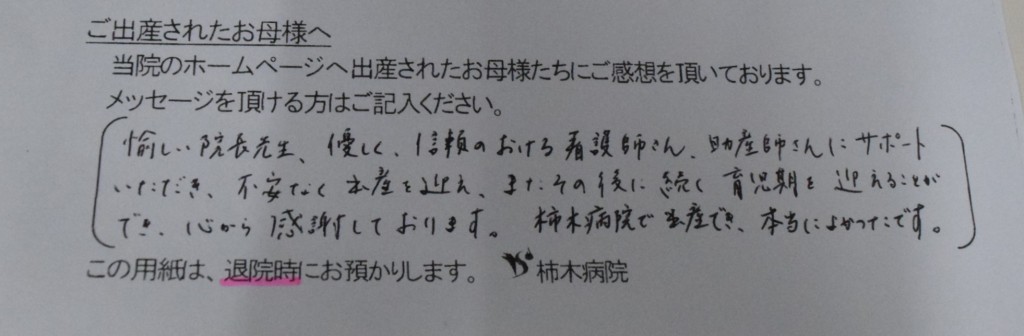 ご出産されたお母様へ
当院のホームページへ出産されたお母様たちにご感想を頂いております。
メッセージを頂ける方はご記入ください。
愉しい院長先生、優しく、信頼のおける看護師さん、助産師さんにサポート
いただき、不安なく出産を迎え、またその後に続く育児期を迎えることが
でき、心から感謝しております。柿木病院で出産でき、本当によかったです。
この用紙は、退院時にお預かりします。 柿木病院